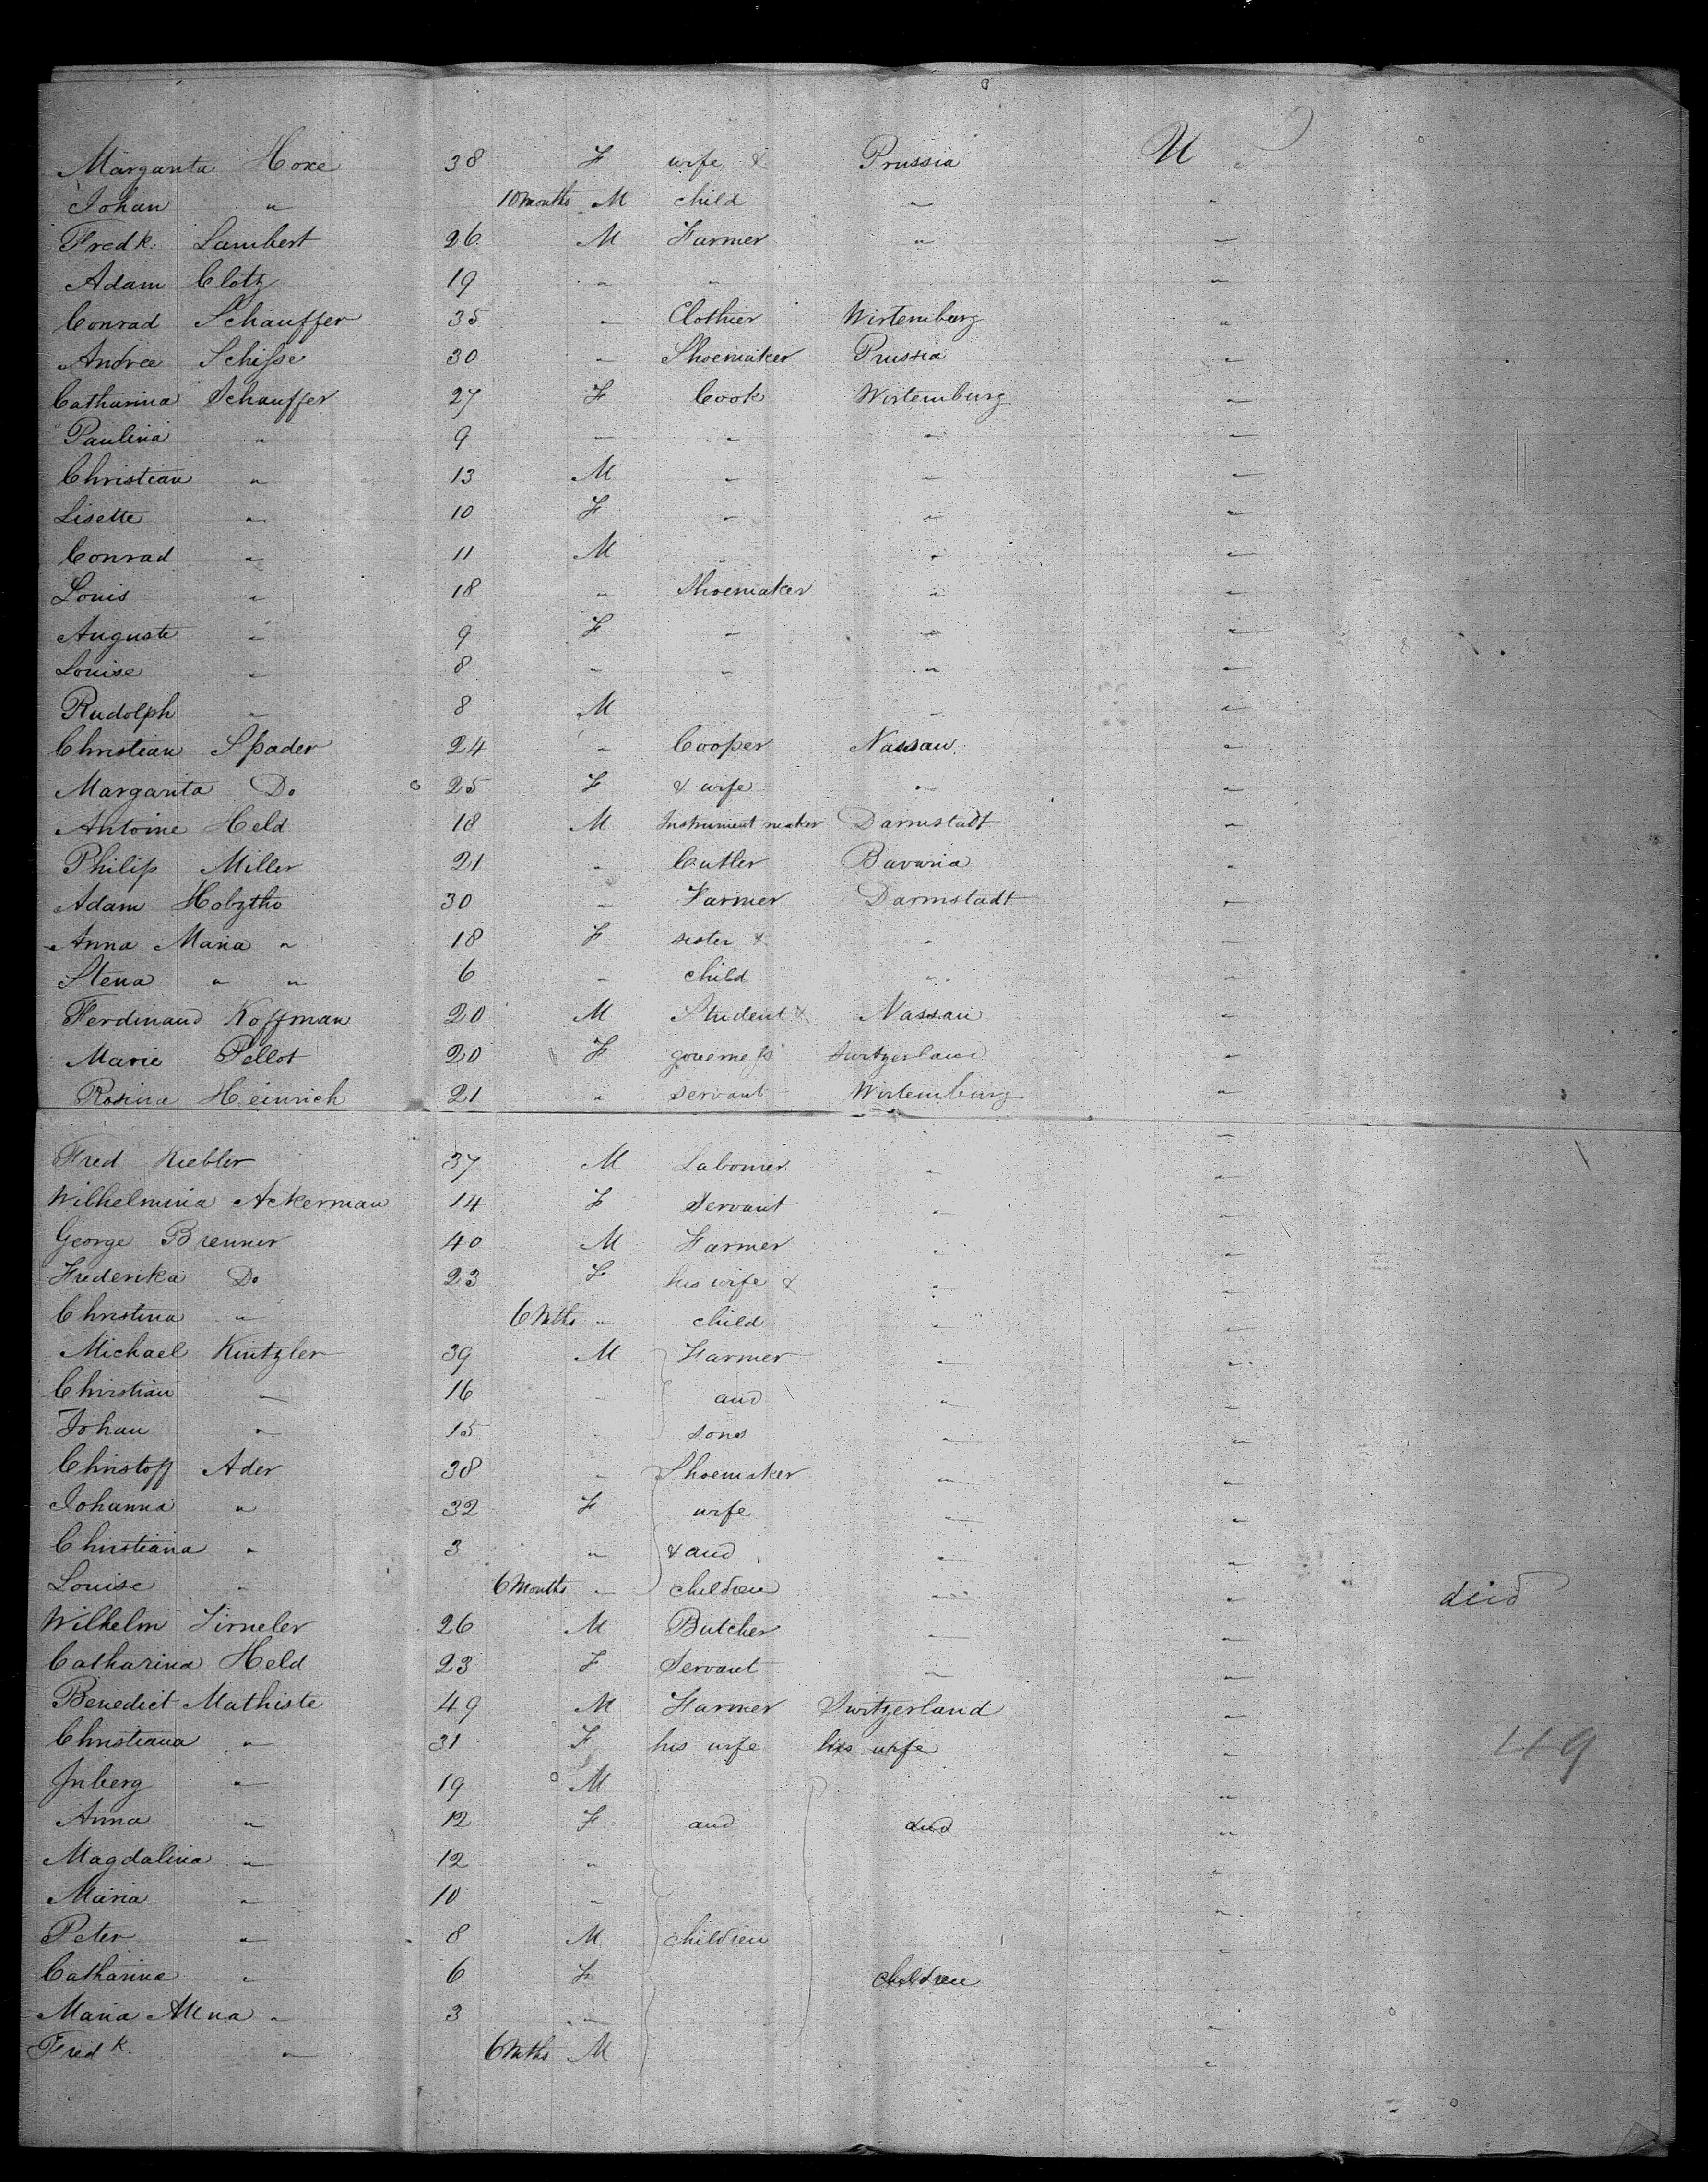 Margarita Hoxe 38 F wife & Prussia U
Johan " 10 months M child " "
Fredk. Lambert 26 M Farmer " "
Adam Clotz 19 " " "
Conrad Schauffer 35 " Clothier Wirtemburg "
Andrea Schisse 30 " Shoemaker Prussia "
Catharina Schauffer 27 F Cook Wirtemburg "
Paulina " 9 " " " "
Christian " 13 M " " "
Lisette " 10 F " " "
Conrad " 11 M " "
Louis " 18 " Shoemaker " "
Auguste " 9 F " " "
Louise " 8 " " " "
Rudolph " 8 M " "
Christian Spader 24 " Cooper Nassau "
Margarita Do 25 F & wife " "
Antoine Held 18 M Instrument maker Darmstadt "
Philip Miller 21 " Cutler Bavaria "
Adam Hobztho 30 " Farmer Darmstadt "
Anna Maria " 18 F sister & " "
Stena " " 6 " child " "
Ferdinand Koffman 20 M Student & Nassau "
Marie Pellot 20 F governess Switzerland "
Rosina Heinrich 21 " servant Wirtemburg "
Fred Kiebler 37 M Labourer " "
Wilhelmina Ackerman 14 F Servant " "
George Brenner 40 M Farmer " "
Frederika Do 23 F his wife & " "
Christina " 6 Mths " child " "
Michael Kintzler 39 M Farmer " "
Christian " 16 " and " "
Johan " 15 sons " "
Christoff Ader 38 " Shoemaker " "
Johanna " 32 F wife " "
Christiana " 3 " & and " "
Louise " 6 Months " children " " died
Wilhelm 26 M Butcher " "
Catharina Held 23 F Servant " "
Benedict Mathiste 49 M Farmer Switzerland "
Christiana " 31 F his wife his wife " 119
Inberg " 19 M "
Anna " 12 F and and "
Magdalina " 12 " "
Maria " 10 " "
Peter " 8 M children "
Catharina " 6 F children "
Maria " 3 " "
Fredk. " 6 Mths M "